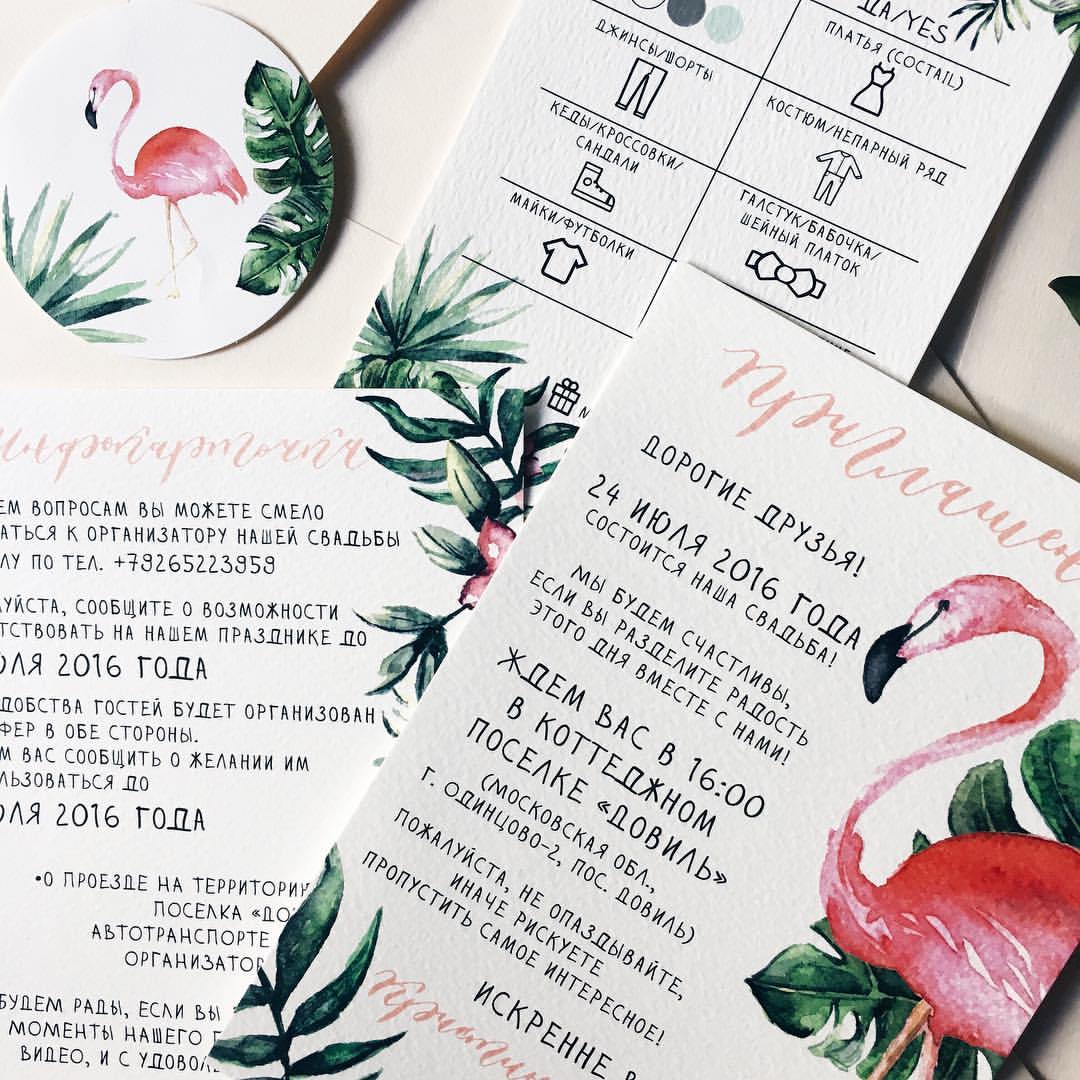 ДА/YES
ДЖИНСЫ/ШОРТЫ
ПЛАТЬЯ (COCTAIL)
КЕДЫ/КРОССОВКИ/
САНДАЛИ
КОСТЮМ/НЕПАРНЫЙ РЯД
МАЙКИ/ФУТБОЛКИ
ГАЛСТУК/БАБОЧКА/
ШЕЙНЫЙ ПЛАТОК
Инфокарточка
ЕМ ВОПРОСАМ ВЫ МОЖЕТЕ СМЕЛО
АТЬСЯ К ОРГАНИЗАТОРУ НАШЕЙ СВАДЬБЫ
ЛУ ПО ТЕЛ. +79265223959
УЙСТА, СООБЩИТЕ О ВОЗМОЖНОСТИ
ТСТВОВАТЬ НА НАШЕМ ПРАЗДНИКЕ ДО
ЮЛЯ 2016 ГОДА
ДОБСТВА ГОСТЕЙ БУДЕТ ОРГАНИЗОВАН
ФЕР В ОБЕ СТОРОНЫ.
М ВАС СООБЩИТЬ О ЖЕЛАНИИ ИМ
ЛЬЗОВАТЬСЯ ДО
ЮЛЯ 2016 ГОДА
•О ПРОЕЗДЕ НА ТЕРРИТОРИ
ПОСЕЛКА «ДО
АВТОТРАНСПОРТЕ
ОРГАНИЗАТОР
БУДЕМ РАДЫ, ЕСЛИ ВЫ
МОМЕНТЫ НАШЕГО П
ВИДЕО, И С УДОВОЛ
Приглашен
ДОРОГИЕ ДРУЗЬЯ!
24 ИЮЛЯ 2016 ГОДА
СОСТОИТСЯ НАША СВАДЬБА!
МЫ БУДЕМ СЧАСТЛИВЫ,
ЕСЛИ ВЫ РАЗДЕЛИТЕ РАДОСТЬ
ЭТОГО ДНЯ ВМЕСТЕ С НАМИ!
ЖДЕМ ВАС В 16:00
В КОТТЕДЖНОМ
ПОСЕЛКЕ «ДОВИЛЬ»
(МОСКОВСКАЯ ОБЛ.,
Г. ОДИНЦОВО-2, ПОС. ДОВИЛЬ)
ПОЖАЛУЙСТА, НЕ ОПАЗДЫВАЙТЕ,
ИНАЧЕ РИСКУЕТЕ
ПРОПУСТИТЬ САМОЕ ИНТЕРЕСНОЕ!
ИСКРЕННЕ В